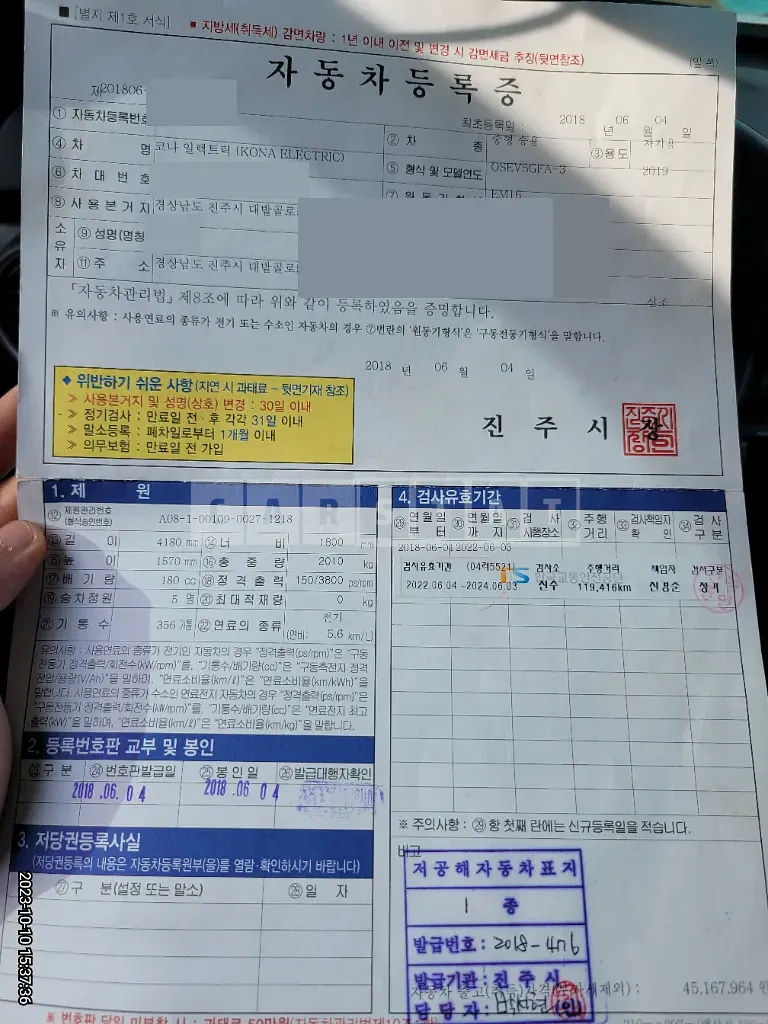 ■ [별지 제1호 서식]
■ 지방세(취득세) 감면차량 : 1년 이내 이전 및 변경 시 감면세금 추징(뒷면참조)
(앞 쪽)
자동차등록증
제201806-
최초등록일 : 2018 년 06 월 04 일
① 자동차등록번호 ② 차 종 중형 승용 ③용도 자가용
④ 차 명 코나 일렉트릭 (KONA ELECTRIC) ⑤ 형식 및 모델연도 OSEV5GFA-3 2019
⑥ 차 대 번 호 ⑦ 원 동 기 형 식 EM16
⑧ 사 용 본 거 지 경상남도 진주시 대밭골로
소유자 ⑨ 성명(명칭
⑪ 주 소 경상남도 진주시 대밭골로
신소
「자동차관리법」 제8조에 따라 위와 같이 등록하였음을 증명합니다.
※ 유의사항 : 사용연료의 종류가 전기 또는 수소인 자동차의 경우 ⑦번란의 '원동기형식'은 '구동전동기형식'을 말합니다.
2018 년 06 월 04 일
◆ 위반하기 쉬운 사항 (지연 시 과태료 - 뒷면기재 참조)
» 사용본거지 및 성명(상호) 변경 : 30일 이내
» 정기검사 : 만료일 전 · 후 각각 31일 이내
» 말소등록 : 폐차일로부터 1개월 이내
» 의무보험 : 만료일 전 가입
진 주 시 장
1. 제 원
⑫ 제원관리번호 (형식승인번호) A08-1-00109-0027-1218
⑬ 길 이 4180 mm ⑭ 너 비 1800 mm
⑮ 높 이 1570 mm ⑯ 총 중 량 2010 kg
⑰ 배 기 량 180 cc ⑱ 정 격 출 력 150/3800 ps/rpm
⑲ 승차정원 5 명 ⑳ 최 대 적 재 량 0 kg
㉑ 기 통 수 356 기통 ㉒ 연료의 종류 전기 (연비: 5.6 km/L)
유의사항 : 사용연료의 종류가 전기인 자동차의 경우 "정격출력(ps/rpm)"은 "구동
전동기 정격출력/회전수(kW/rpm)"를, "기통수/배기량(cc)"은 "구동축전지 정격
전압/용량(V/Ah)"을 말하며, "연료소비율(km/ℓ)"은 "연료소비율(km/kWh)"을
말합니다. 사용연료의 종류가 수소인 연료전지 자동차의 경우 "정격출력(ps/rpm)"은
"구동전동기 정격출력/회전수(kW/rpm)"를, "기통수/배기량(cc)"은 "연료전지 최고
출력(kW)"을 말하며, "연료소비율(km/ℓ)"은 "연료소비율(km/kg)"을 말합니다.
2. 등록번호판 교부 및 봉인
㉓ 구 분 ㉔ 번호판발급일 ㉕ 봉 인 일 ㉖ 발급대행자확인
2018 .06. 0 4 2018 .06 0 4
3. 저당권등록사실
(저당권등록의 내용은 자동차등록원부(을)를 열람·확인하시기 바랍니다)
㉗ 구 분(설정 또는 말소) ㉘ 일 자
4. 검사유효기간
㉙ 연월일 부터 ㉚ 연월일 까지 ㉛ 검사 시행장소 ㉜ 주행 거리 ㉝ 검사책임자 확인 ㉞ 검사 구분
2018-06-04 2022-06-03
검사유효기간 (04러5524) 검사소 주행거리 책임자 검사구분
2022.06.04 -2024.06.03 진주 119,416km 신경순 정기
TS 한국교통안전공단
※ 주의사항 : ㉙ 항 첫째 란에는 신규등록일을 적습니다.
비고
저공해자동차표지
1 종
발급번호: 2018-476
발급기관: 진주시
담 당 자: (인)
자동차 출고(취득)가격(부가세제외) : 45,167,964 원
※ 번호판 당일 미부착 시 : 과태료 50만원
2023-10-10 15:37:36